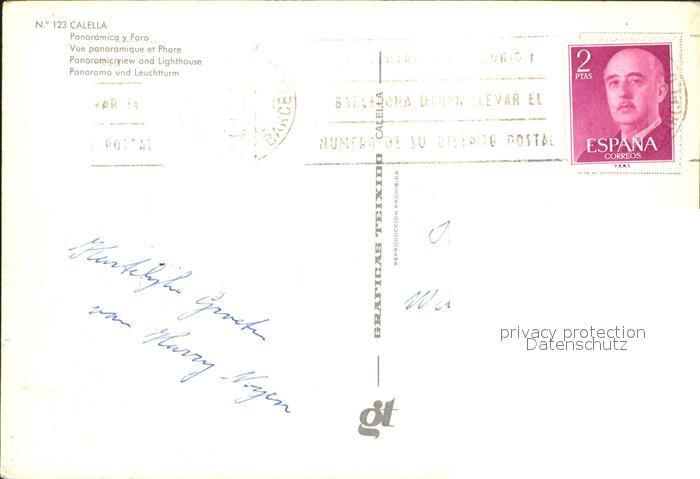 N.º 123 CALELLA
Panorámica y Faro
Vue panoramique et Phare
Panoramic view and Lighthouse
Panorama und Leuchtturm
VAR EL
POSTAL
BARCEL
BARCELONA DEBEN LLEVAR EL
NUMERO DE SU DISTRITO POSTAL
2
PTAS
ESPAÑA
CORREOS
F.N.M.T.
GRAFICAS TEIXIDO CALELLA
REPRODUCCION PROHIBIDA
Hartelijke Groeten
van Harry
privacy protection
Datenschutz
gt